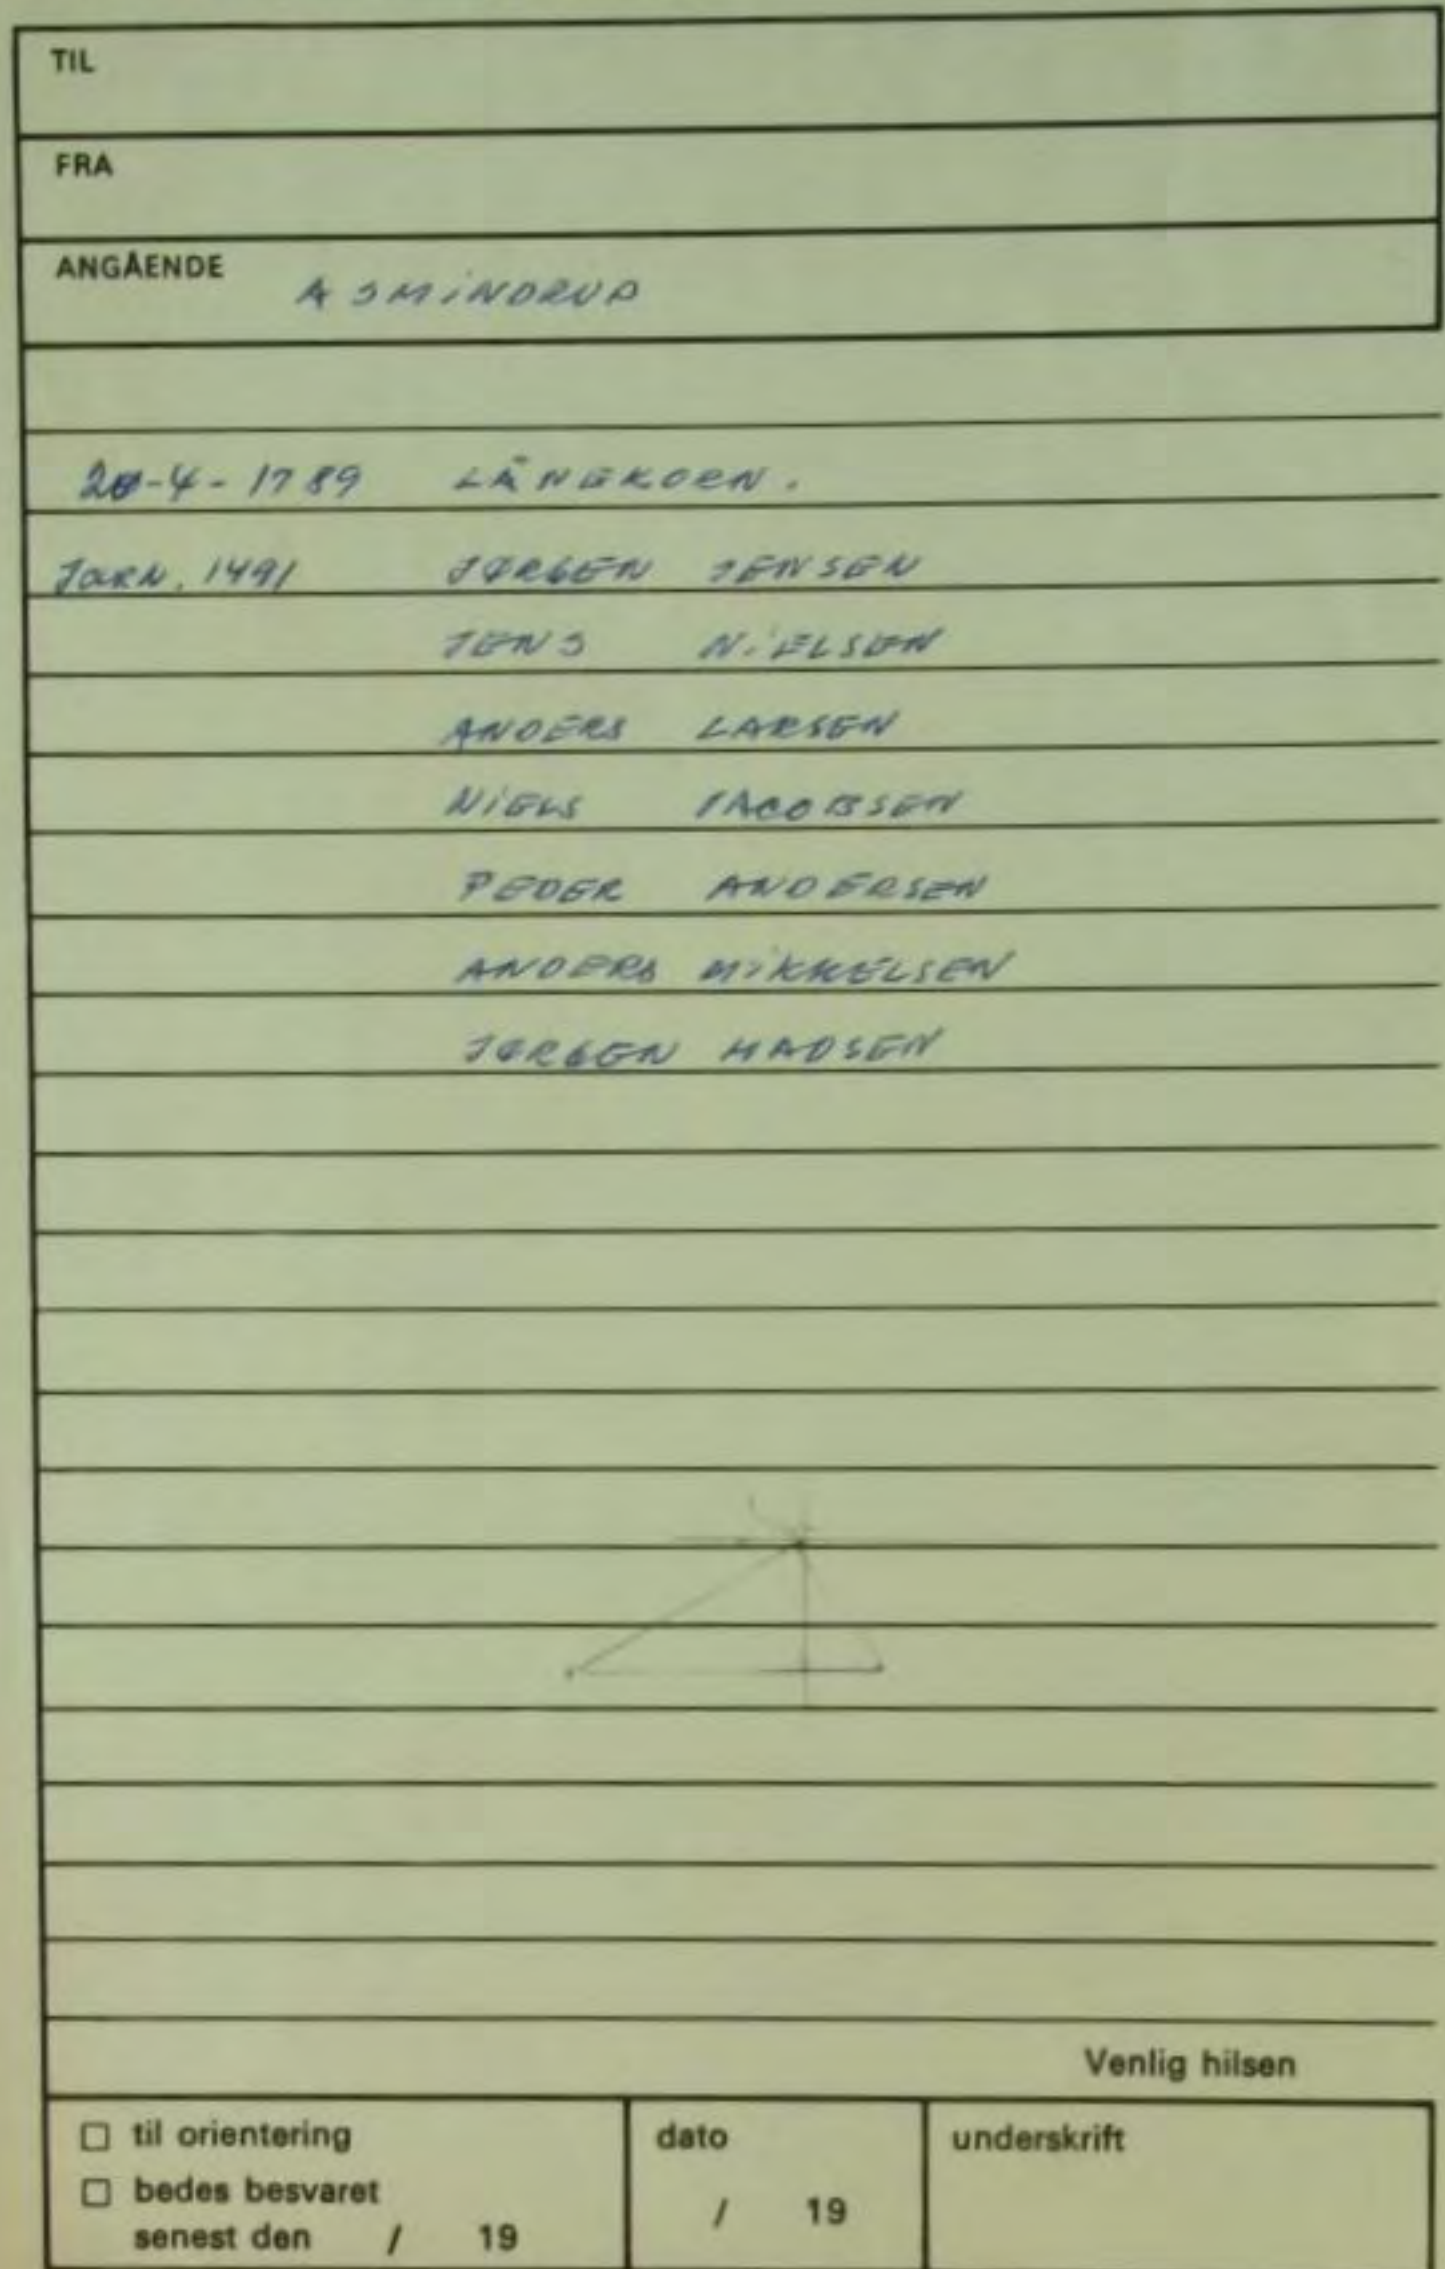 TIL
FRA
ANGÅENDE ASMINDRUP
20-4-1789 LÅNEKORN.
JOURN. 1491 JØRGEN JENSEN
JENS NIELSEN
ANDERS LARSEN
NIELS JACOBSEN
PEDER ANDERSEN
ANDERS MIKKELSEN
JØRGEN MADSEN
Venlig hilsen
☐ til orientering
☐ bedes besvaret
senest den / 19
dato
/ 19
underskrift